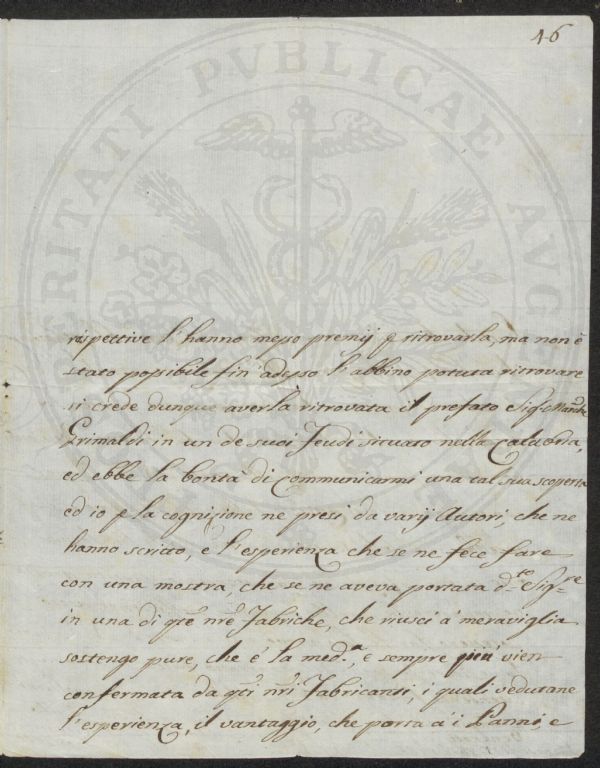 46
PROSPERITATI PVBLICAE AVGENDAE
rispettive l'hanno messo premij p ritrovarla, ma non è
stato possibile fin adesso l'abbino potuta ritrovare
si crede dunque averla ritrovata il prefato Sig.r March
Grimaldi in un de suoi feudi situato nella Calabria,
ed ebbe la bontà di communicarmi una tal sua scoperta
ed io p la cognizione ne presi da varij Autori, che ne
hanno scritto, e l'esperienza che se ne fece fare
con una mostra, che se ne aveva portata d.to Sig.re
in una di qte nre Fabriche, che riuscì à meraviglia
sostengo pure, che è la med.a, e sempre più vien
confermata da qti nri Fabricanti, i quali vedutane
l'esperienza, il vantaggio, che porta à i Panni, e